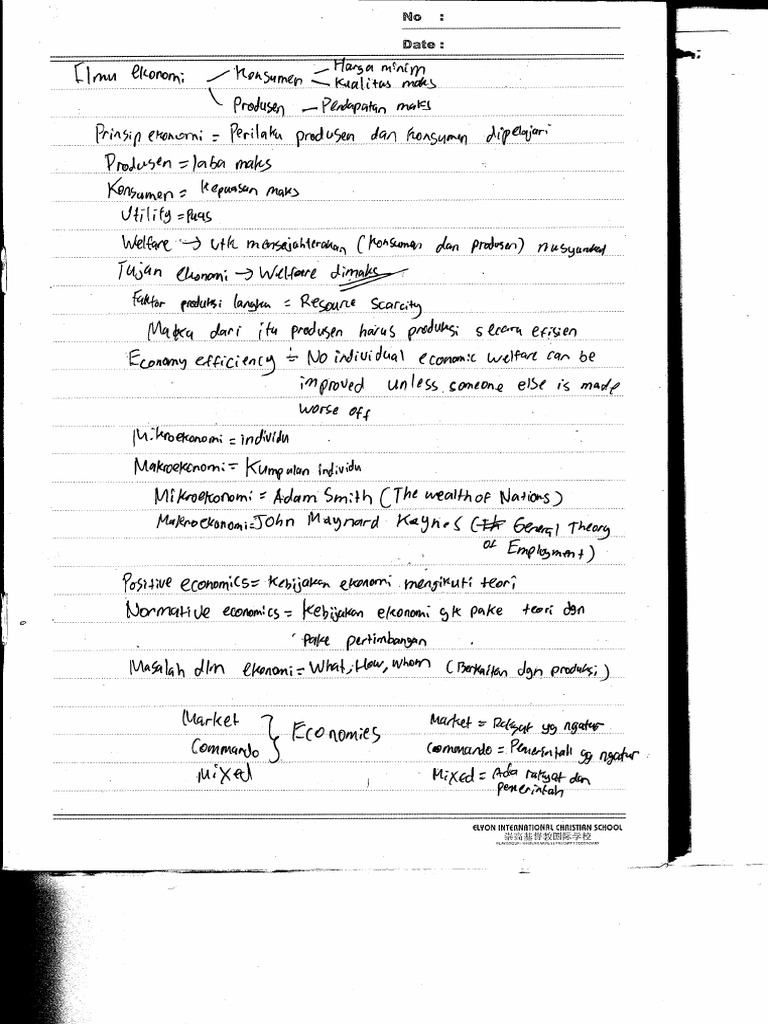 No :
Date :
Ilmu ekonomi
Konsumen
Harga minim
Kualitas maks
Produsen
Pendapatan maks
Prinsip ekonomi = Perilaku produsen dan konsumen dipelajari
Produsen = laba maks
Konsumen = Kepuasan maks
Utility = Puas
Welfare → utk mensejahterakan (konsumen dan produsen)
Tujan ekonomi → Welfare dimaks
Faktor produksi langka = Resource scarcity
Maka dari itu produsen harus produksi secara efisien
Economy efficiency = No individual economic welfare can be
improved unless someone else is made
worse off
Mikroekonomi = individu
Makroekonomi = Kumpulan individu
Mikroekonomi = Adam Smith (The wealth of Nations)
Makroekonomi = John Maynard Kaynes ( General Theory
of Employment)
Positive economics = Kebijakan ekonomi mengikuti teori
Normative economics = Kebijakan ekonomi gk pake teori dgn
pake pertimbangan
Masalah dlm ekonomi = What, How, whom (Berkaitan dgn produksi)
Market
Commando
Mixed
Economies
Market = Rakyat yg ngatur
Commando = Pemerintah yg ngatur
Mixed = Ada rakyat dan
pemerintah
ELYON INTERNATIONAL CHRISTIAN SCHOOL
崇高基督教国际学校